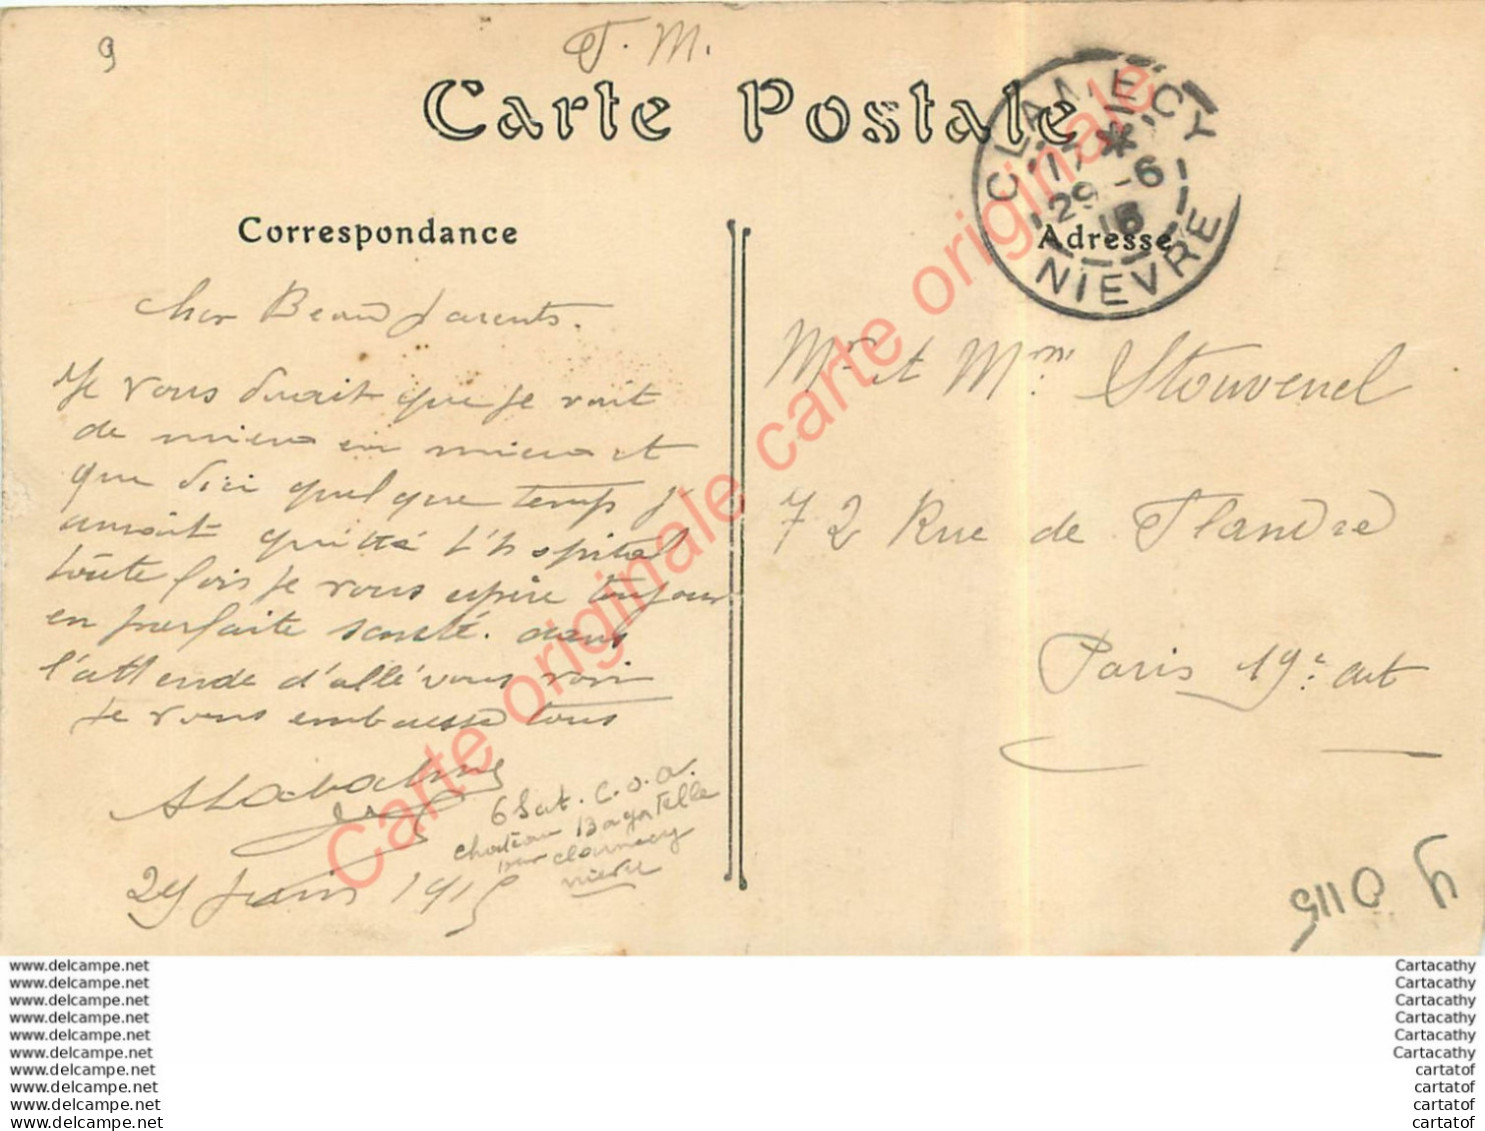 9
F. M.
Carte Postale
CLAMECY
17 *
29 -6
15
NIEVRE
Correspondance
Adresse
Cher Beaux parents.
Je vous dirait que je vait
de mieux en mieux et
que dici quelque temps j'
aurait quitté l'hopital
toute fois je vous espère toujour
en parfaite santé. dans
l'attende d'allé vous voir
je vous embrasse tous
29 Juin 1915
6 Sat. C.O.A.
Chateau Bagatelle
par Clamecy
Nievre
Mr et Mme Stouvenel
72 Rue de Flandre
Paris 19e art
9 0115
Carte originale carte originale
www.delcampe.net
www.delcampe.net
www.delcampe.net
www.delcampe.net
www.delcampe.net
www.delcampe.net
www.delcampe.net
www.delcampe.net
www.delcampe.net
www.delcampe.net
Cartacathy
Cartacathy
Cartacathy
Cartacathy
Cartacathy
Cartacathy
cartatof
cartatof
cartatof
cartatof